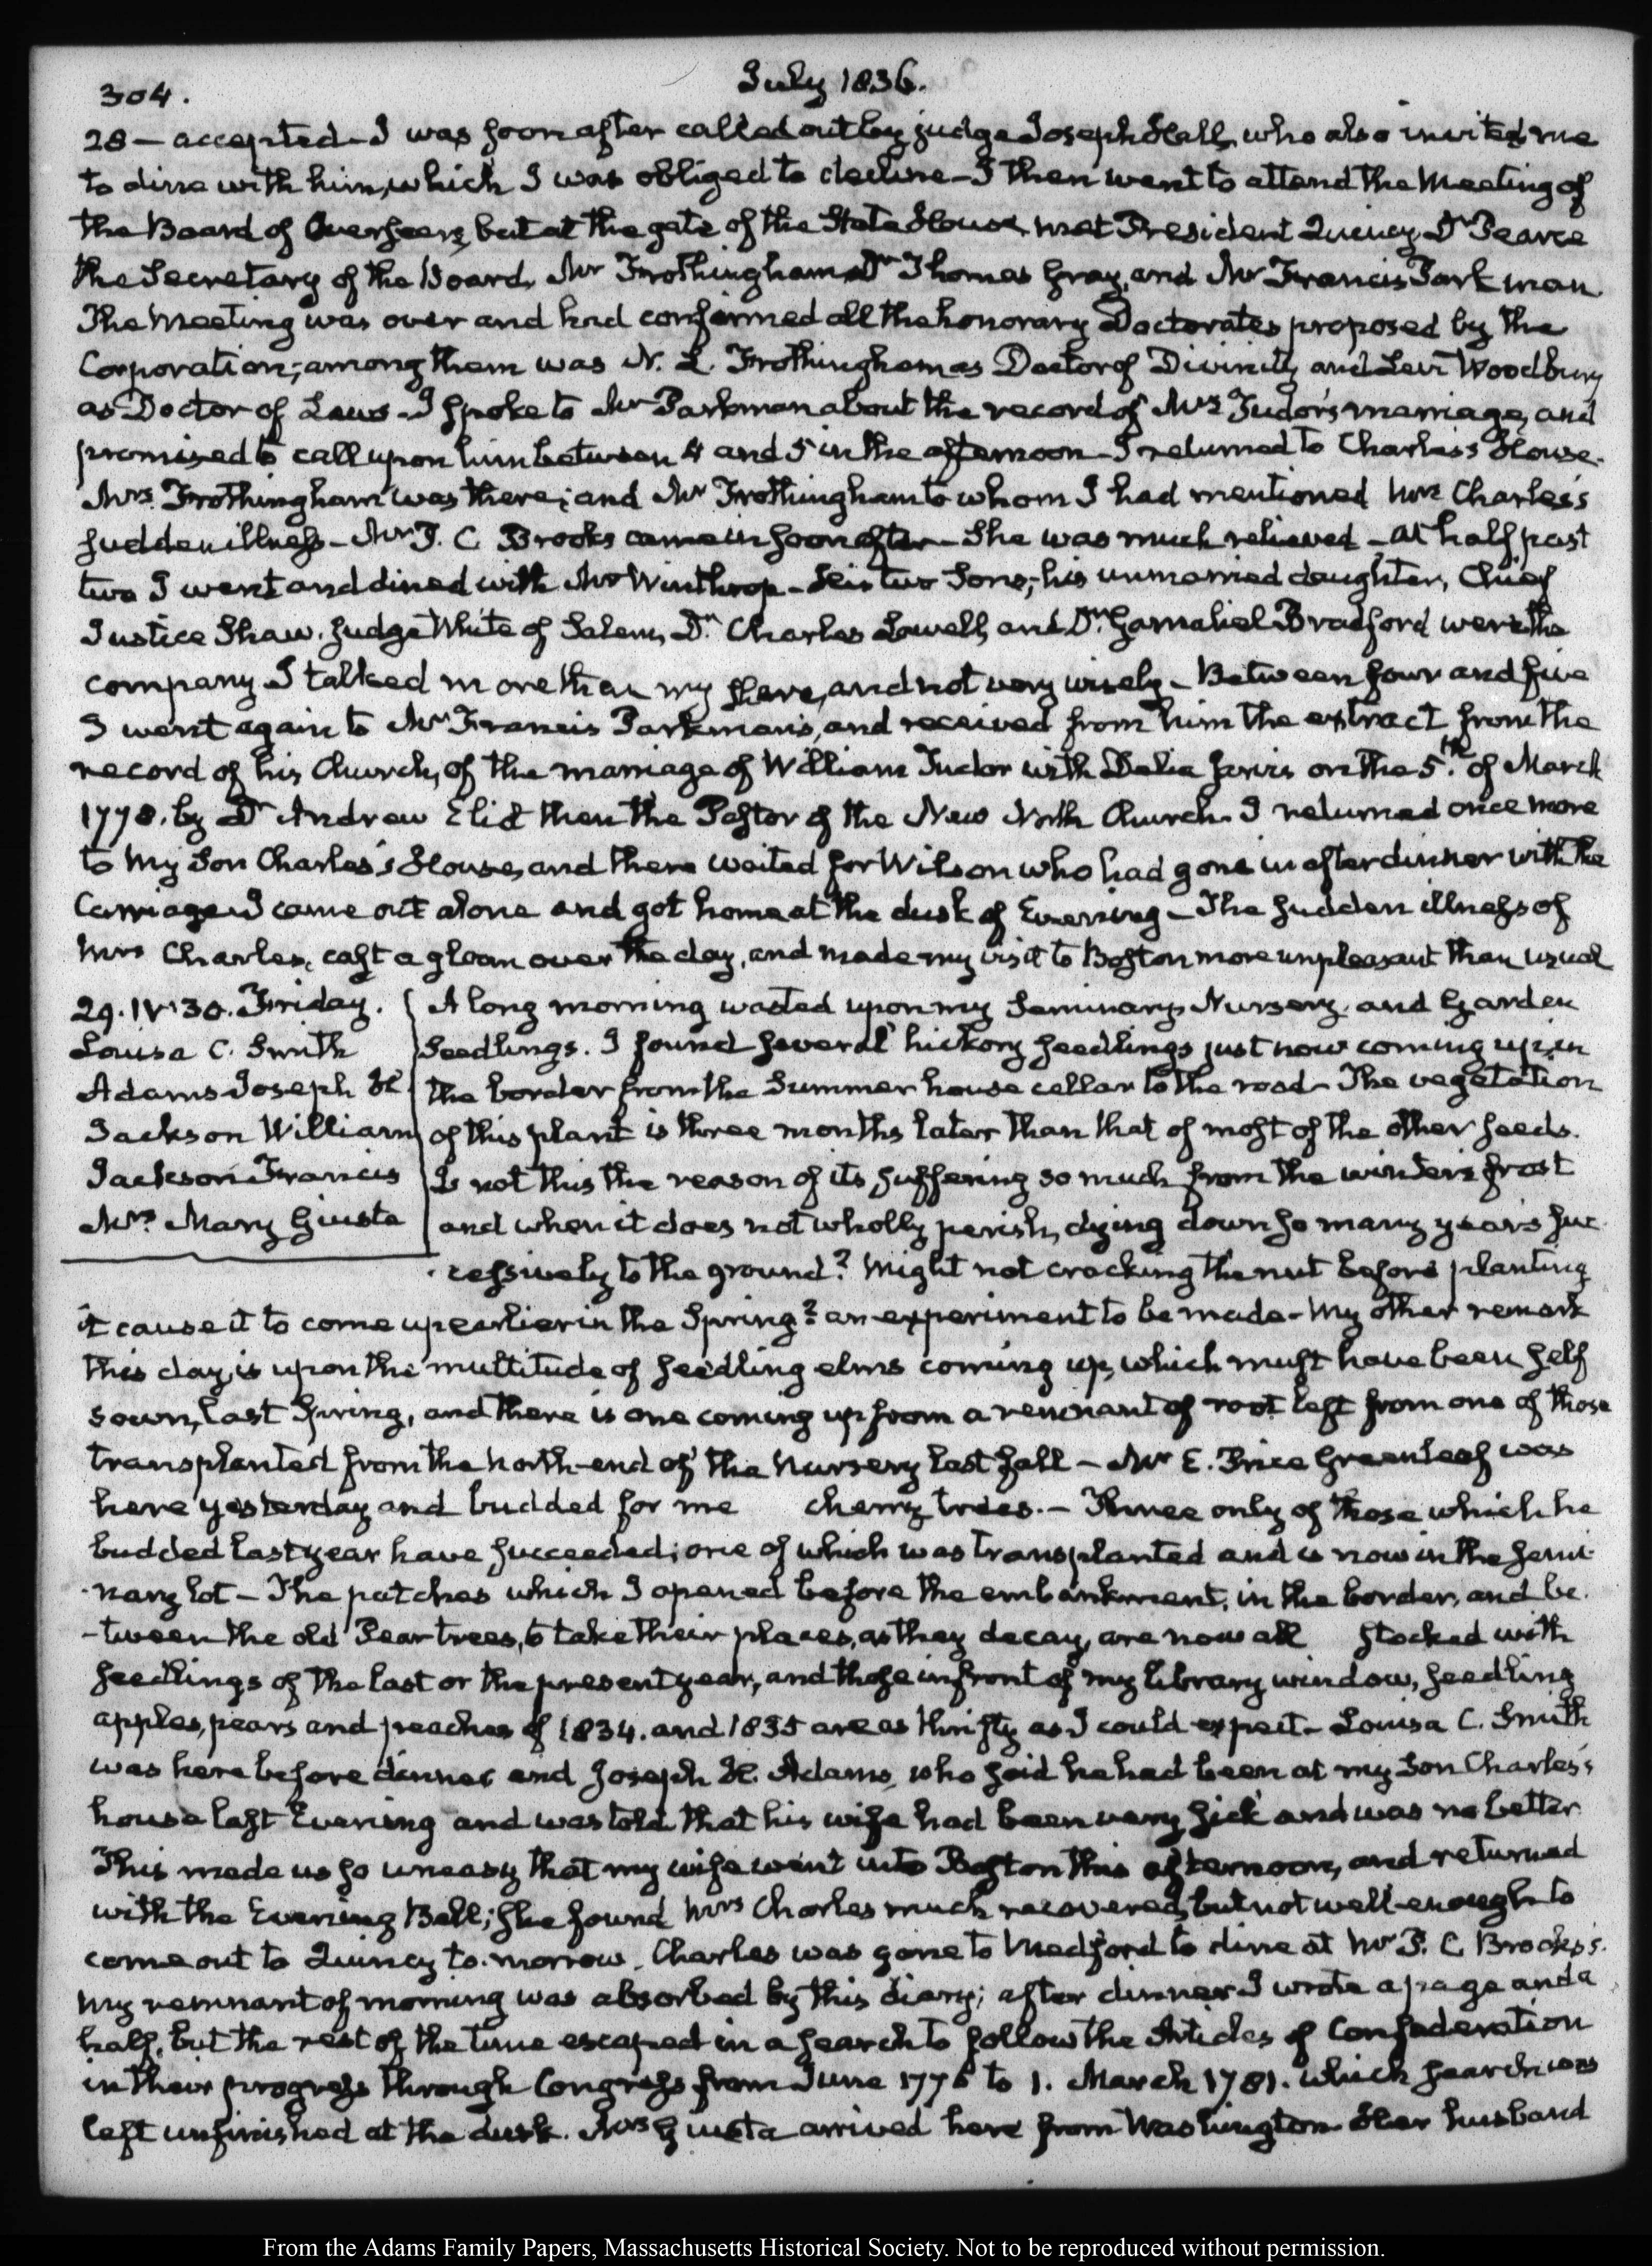 304.
July 1836.
28 — accepted — I was soon after called out by judge Joseph Hall, who also invited me
to dine with him, which I was obliged to decline — I then went to attend the Meeting of
the Board of Overseers, but at the gate of the State House, met President Quincy, Dr Pearce
the Secretary of the Board, Mr Frothingham, Dr Thomas Gray, and Mr Francis Parkman.
The Meeting was over and had confirmed all the honorary Doctorates proposed by the
Corporation; among them was N. L. Frothingham as Doctor of Divinity, and Levi Woodbury
as Doctor of Laws — I spoke to Mr Parkman about the record of Mrs Tudor's marriage, and
promised to call upon him between 4 and 5 in the afternoon — I returned to Charles's House.
Mrs Frothingham was there; and Mr Frothingham to whom I had mentioned Mrs Charles's
sudden illness — Mr P. C. Brooks came in soon after — She was much relieved — at half past
two I went and dined with Mr Winthrop — His two Sons, his unmarried daughter, Chief
Justice Shaw, Judge White of Salem, Dr Charles Lowell, and Dr Gamaliel Bradford were the
company — I talked more than my share, and not very wisely — Between four and five
I went again to Mr Francis Parkman's, and received from him the extract from the
record of his Church, of the marriage of William Tudor with Delia Jarvis on the 5th of March
1778. by Dr Andrew Eliot then the Pastor of the New North Church. I returned once more
to my Son Charles's House, and there waited for Wilson who had gone in after dinner with the
Carriage — I came out alone and got home at the dusk of Evening — The sudden illness of
Mrs Charles, cast a gloom over the day, and made my visit to Boston more unpleasant than usual
29. IV. 30. Friday.
Louisa C. Smith
Adams Joseph H.
Jackson William
Jackson Francis
Mrs Mary Giusta
A long morning wasted upon my Seminary, Nursery, and Garden
Seedlings. I found several hickory seedlings just now coming up, in
the border from the Summer house cellar to the road — The vegetation
of this plant is three months later than that of most of the other seeds.
Is not this the reason of its suffering so much from the winter's frost
and when it does not wholly perish, dying down so many years suc-
-cessively to the ground? Might not cracking the nut before planting
it cause it to come up earlier in the Spring? an experiment to be made — My other remark
this day, is upon the multitude of seedling elms coming up, which must have been self
sown, last Spring, and there is one coming up from a remnant of root left from one of those
transplanted from the North-end of the Nursery last fall — Mr E. Price Greenleaf was
here yesterday and budded for me cherry trees. — Three only of those which he
budded last year have succeeded; one of which was transplanted and is now in the Semi-
-nary lot — The patches which I opened before the embankment, in the border, and be-
-tween the old Pear trees, to take their places, as they decay, are now all stocked with
seedlings of the last or the present year, and those in front of my library window, seedling
apples, pears and peaches of 1834. and 1835 are as thrifty as I could expect — Louisa C. Smith
was here before dinner and Joseph H. Adams, who said he had been at my Son Charles's
house last Evening and was told that his wife had been very sick and was no better.
This made us so uneasy that my wife went into Boston this afternoon, and returned
with the Evening Bell; she found Mrs Charles much recovered, but not well enough to
come out to Quincy to-morrow. Charles was gone to Medford to dine at Mr P. C. Brooks's.
My remnant of morning was absorbed by this diary; after dinner I wrote a page and a
half, but the rest of the time escaped in a search to follow the Articles of Confederation
in their progress through Congress from June 1776 to 1. March 1781. which search was
left unfinished at the dusk. Mrs Giusta arrived here from Washington. Her husband
From the Adams Family Papers, Massachusetts Historical Society. Not to be reproduced without permission.